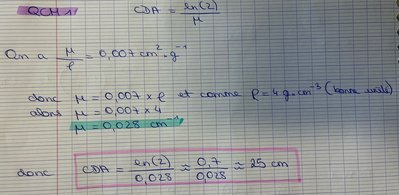 QCM 1 CDA = ln(2)/μ
On a μ/ρ = 0,007 cm².g⁻¹
donc μ = 0,007 x ρ et comme ρ = 4 g.cm⁻³ (bonne unité)
alors μ = 0,007 x 4
μ = 0,028 cm⁻¹
donc CDA = ln(2)/0,028 ≈ 0,7/0,028 ≈ 25 cm